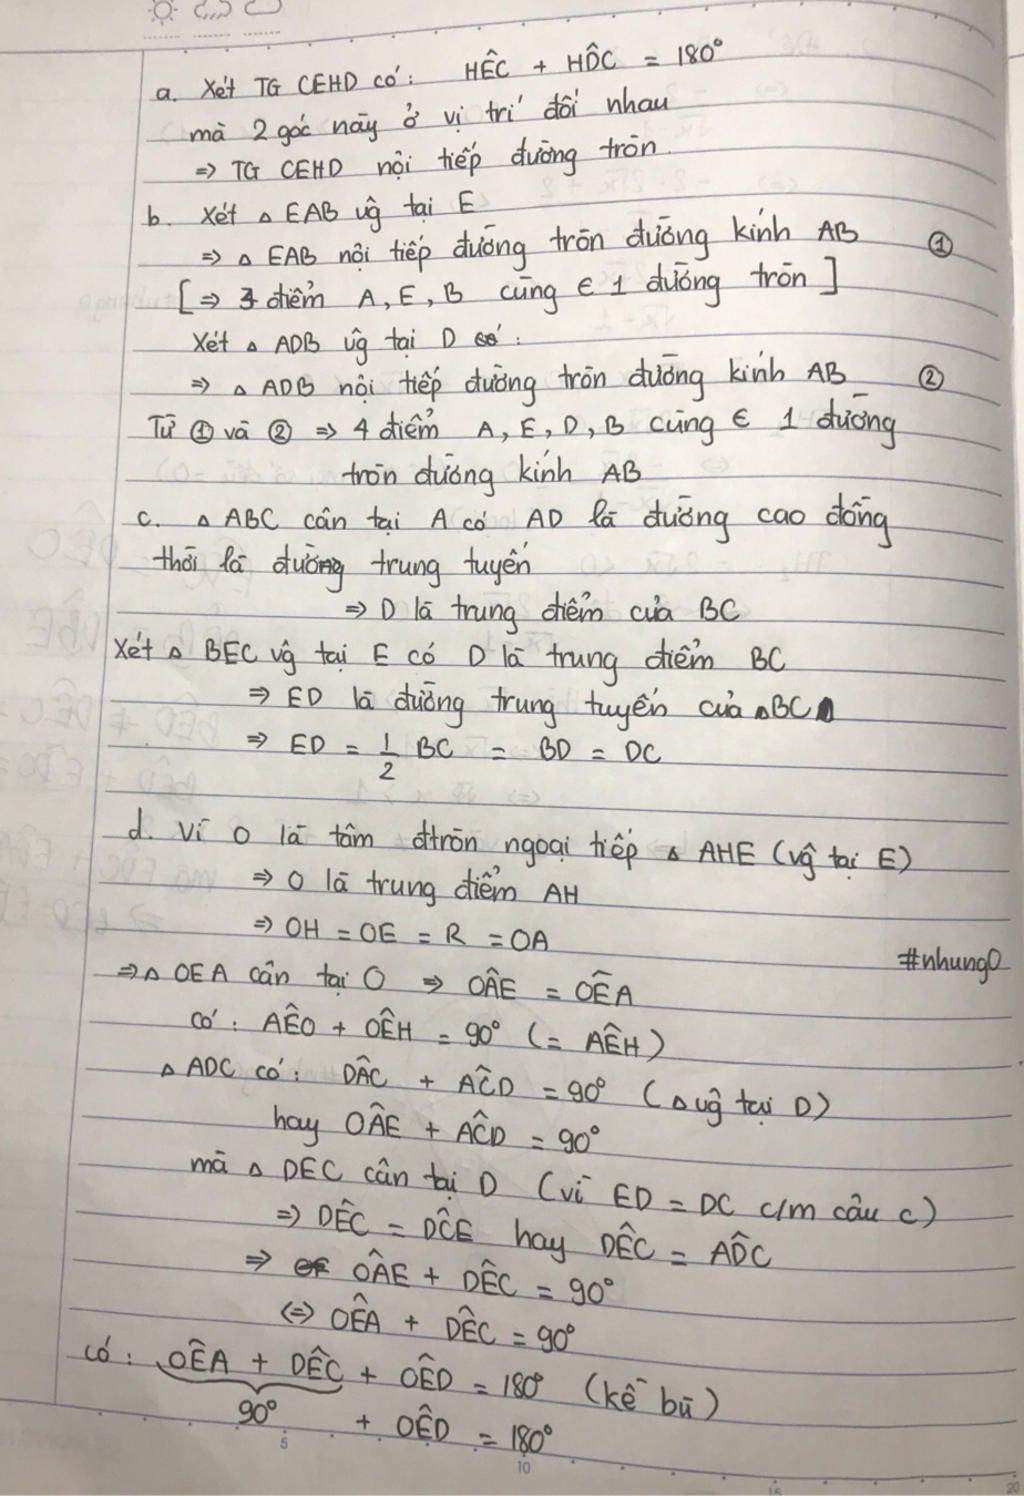 a. Xét TG CEHD có: HÊC + HD̂C = 180°
mà 2 góc này ở vị trí đối nhau
⇒ TG CEHD nội tiếp đường tròn
b. Xét △ EAB vĝ tại E
⇒ △ EAB nội tiếp đường tròn đường kính AB ①
[⇒ 3 điểm A, E, B cùng ∈ 1 đường tròn]
Xét △ ADB vĝ tại D có:
⇒ △ ADB nội tiếp đường tròn đường kính AB ②
Từ ① và ② ⇒ 4 điểm A, E, D, B cùng ∈ 1 đường
tròn đường kính AB
c. △ ABC cân tại A có AD là đường cao đồng
thời là đường trung tuyến
⇒ D là trung điểm của BC
Xét △ BEC vĝ tại E có D là trung điểm BC
⇒ ED là đường trung tuyến của △BC
⇒ ED = 1/2 BC = BD = DC
d. Vì O là tâm đtròn ngoại tiếp △ AHE (vĝ tại E)
⇒ O là trung điểm AH
⇒ OH = OE = R = OA
#nhung0
⇒△ OEA cân tại O ⇒ OÂE = OÊA
Có: AÊO + OÊH = 90° (= AÊH)
△ ADC có: DÂC + AĈD = 90° (△ vĝ tại D)
hay OÂE + AĈD = 90°
mà △ DEC cân tại D (vì ED = DC c/m câu c)
⇒ DÊC = DĈE hay DÊC = AD̂C
⇒ OÂE + DÊC = 90°
⇔ OÊA + DÊC = 90°
có: OÊA + DÊC + OÊD = 180° (kề bù)
90° + OÊD = 180°
5
10
15
20